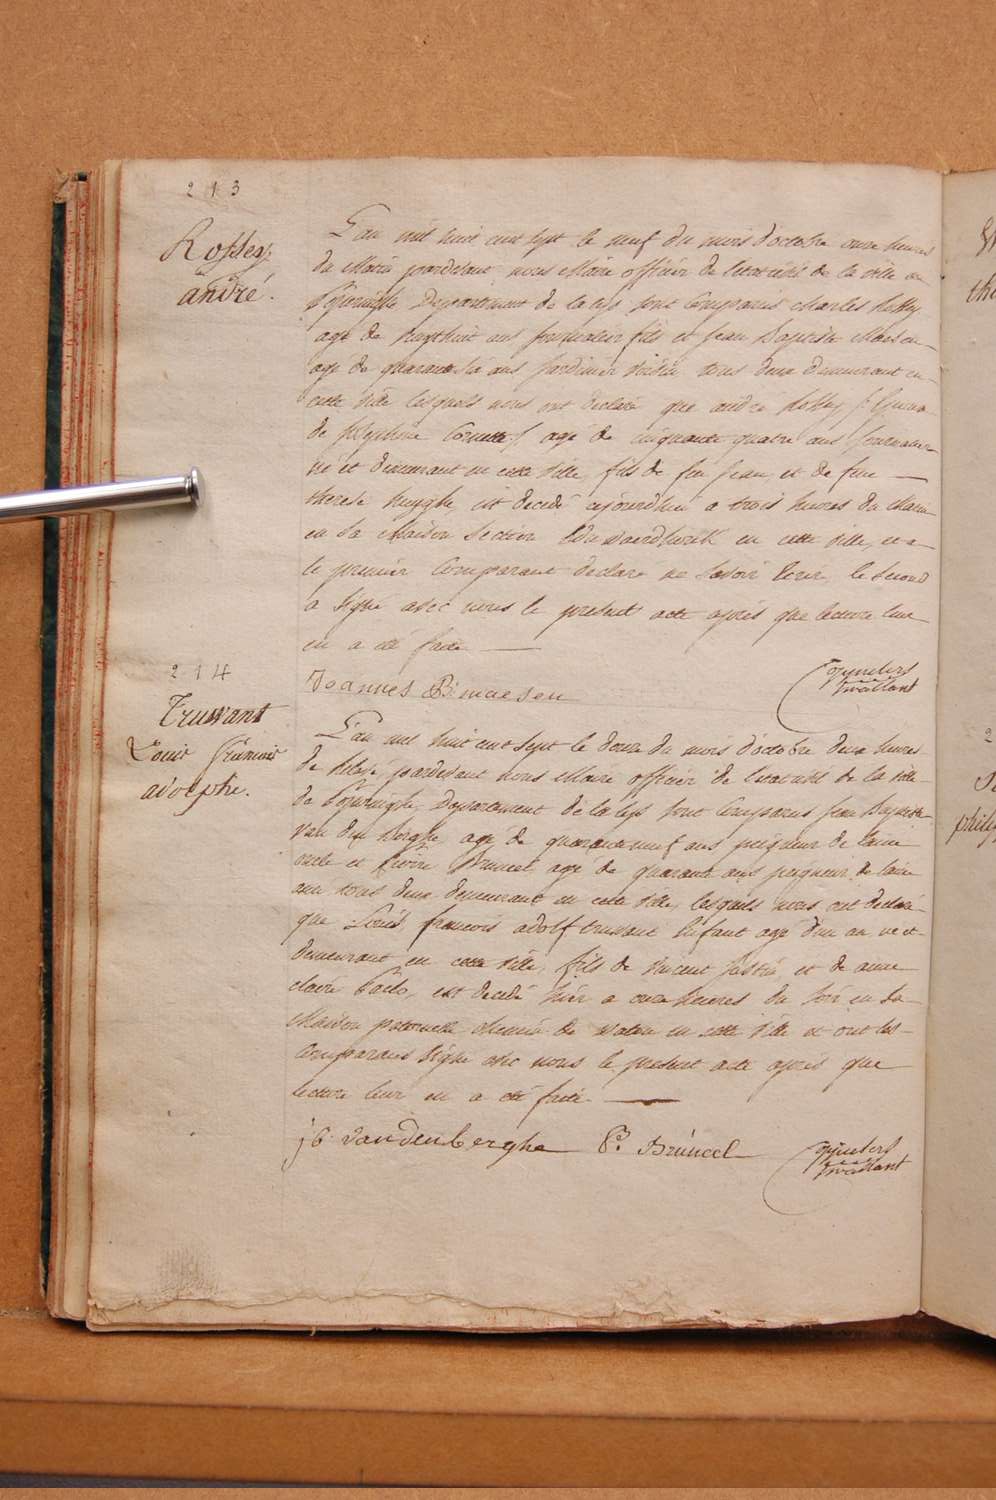 213
Rossey
andré.
L'an mil huit cent sept le neuf du mois d'octobre onze heures
du Matin pardevant nous Maire officier de l'etat civil de la ville de
Poperinghe Departement de la Lys sont Comparus Charles Rossey
agé de vingthuit ans journalier fils et Jean Baptiste Maesen
agé de quarante six ans Jardinier voisin tous deux demeurant en
cette ville lesquels nous ont declaré que andré Rossey
de agé de cinquante quatre ans Journalier
né et demeurant en cette ville, fils de feu Jean et de feue
therese huyghe, est decedé aujourdhui a trois heures du Matin
en sa Maison Section en cette ville, et a
le premier Comparant declaré ne savoir ecrire le second
a signé avec nous le present acte après que lecture leur
en a été faite
Joannes B: maesen
214
Truwant
Louis François
adolphe.
L'an mil huit cent sept le douze du mois d'octobre deux heures
de relevé pardevant nous Maire officier de l'etat civil de la ville
de Poperinghe, Departement de la Lys sont Comparus Jean Baptiste
Van den Berghe agé de quaranteneuf ans peigneur de laine
oncle et Pierre Bruneel agé de quarante ans peigneur de laine
ami tous deux demeurant en cette ville, lesquels nous ont declaré
que Louis françois adolf truwant Enfant agé d'un an, né et
demeurant en cette ville, fils de Vincent Justin, et de anne
claire Paelo, est decedé hier a onze heures du soir en sa
Maison paternelle chemin de waton en cette ville et ont les
Comparans signé avec nous le present acte après que
lecture leur en a été faite.
j b. vandenberghe P. Bruneel